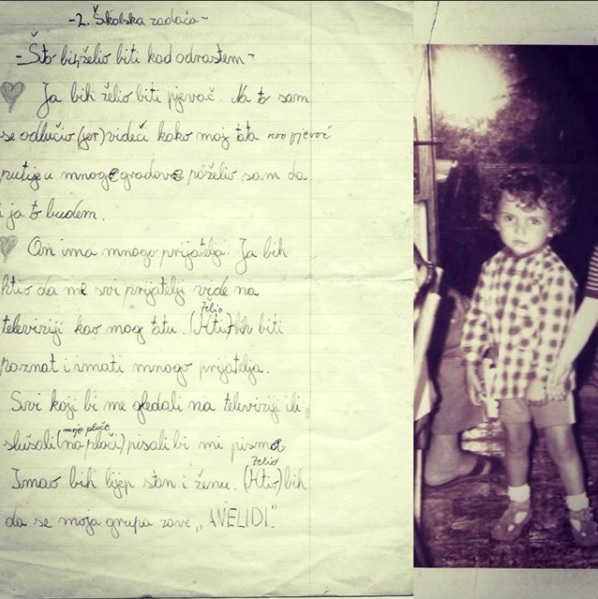 -2. Školska zadaća-
-Što bih želio biti kad odrastem-
Ja bih želio biti pjevač. Na to sam
se odlučio (jer) videći kako moj tata kao pjevač
putuje u mnoge gradove poželio sam da
i ja to budem.
On ima mnogo prijatelja. Ja bih
htio da me svi prijatelji vide na
želio
televiziji kao mog tatu. (Htio) bih biti
poznat i imati mnogo prijatelja.
Svi koji bi me gledali na televiziji ili
moje ploče
slušali (na ploči) pisali bi mi pisma
želio
Imao bih lijep stan i ženu. (Htio) bih
da se moja grupa zove „AVELIDI".